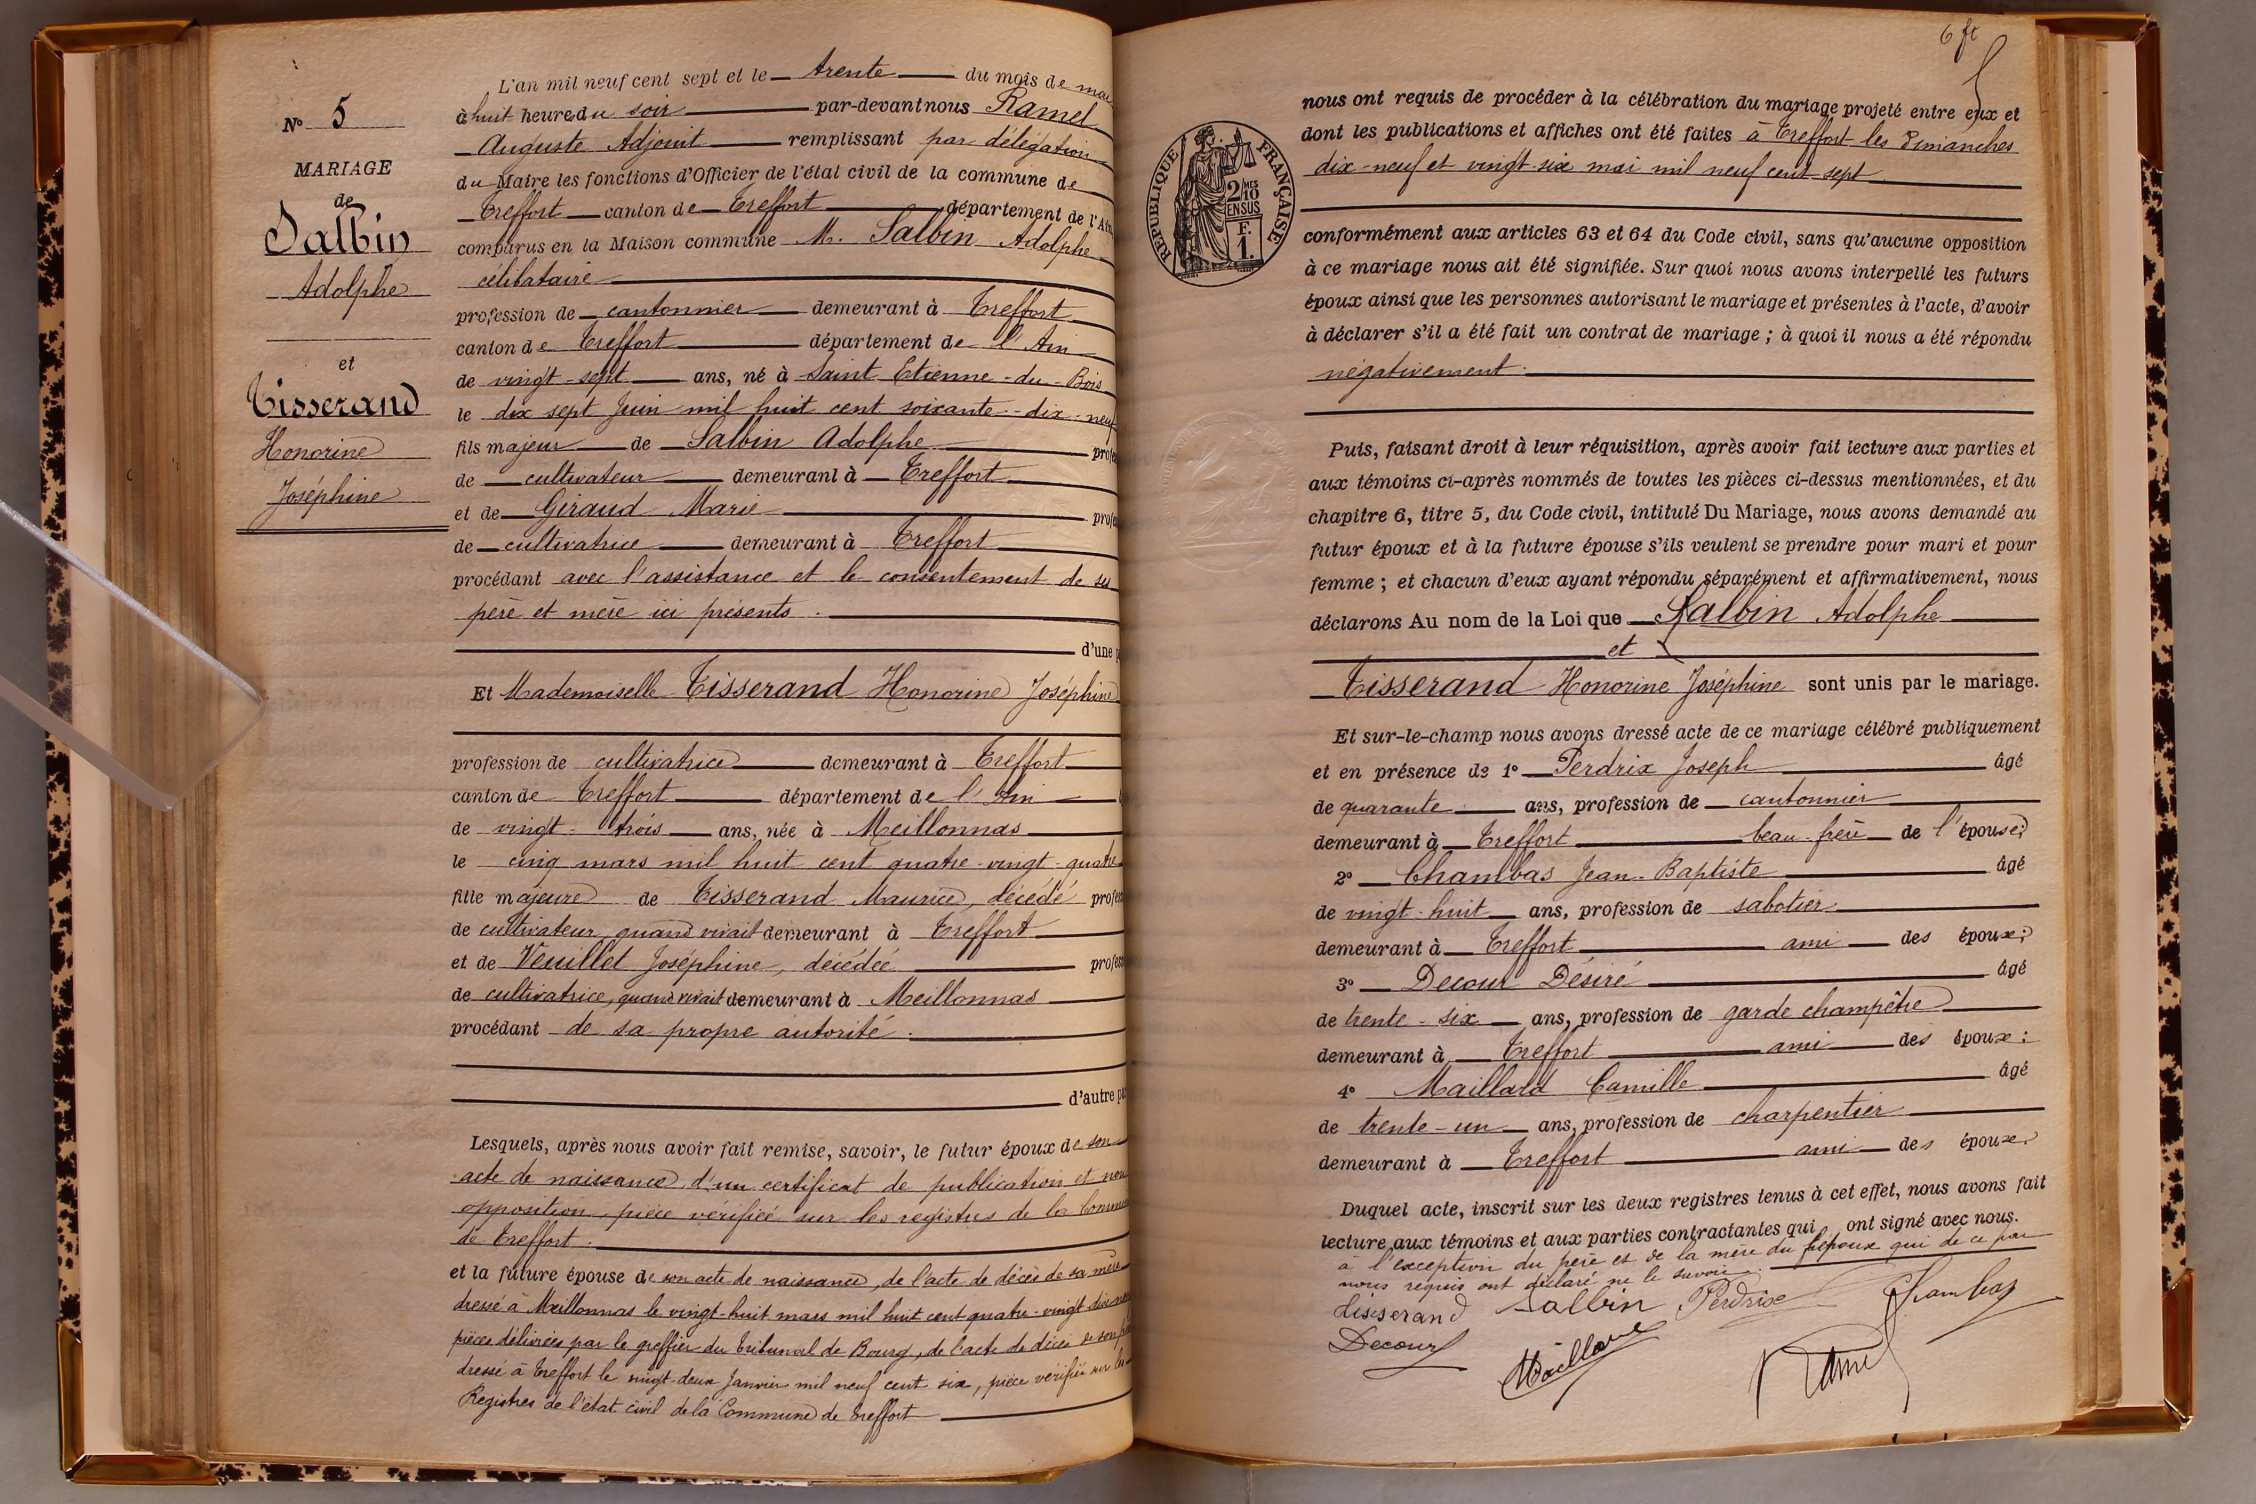 N° 5
MARIAGE
de
Salbin
Adolphe
et
Tisserand
Honorine
Joséphine
L'an mil neuf cent sept et le trente du mois de mai
à huit heures du soir par-devant nous Ramel
Auguste Adjoint remplissant par délégation
du Maire les fonctions d'Officier de l'état civil de la commune de
Treffort canton de Treffort département de l'Ain
comparus en la Maison commune M. Salbin Adolphe
célibataire
profession de cantonnier demeurant à Treffort
canton de Treffort département de l'Ain
de vingt-sept ans, né à Saint Etienne-du-Bois
le dix sept Juin mil huit cent soixante-dix-neuf
fils majeur de Salbin Adolphe profes
de cultivateur demeurant à Treffort
et de Giraud Marie profes
de cultivatrice demeurant à Treffort
procédant avec l'assistance et le consentement de ses
père et mère ici présents.
d'une p
Et Mademoiselle Tisserand Honorine Joséphine
profession de cultivatrice demeurant à Treffort
canton de Treffort département de l'Ain
de vingt-trois ans, née à Meillonnas
le cinq mars mil huit cent quatre-vingt-quatre
fille majeure de Tisserand Maurice, décédé profes
de cultivateur, quand vivait demeurant à Treffort
et de Veuillet Joséphine, décédée profes
de cultivatrice, quand vivait demeurant à Meillonnas
procédant de sa propre autorité.
d'autre pa
Lesquels, après nous avoir fait remise, savoir, le futur époux de son
acte de naissance, d'un certificat de publication et non
opposition, pièce vérifiée sur les registres de la Commune
de Treffort.
et la future épouse de son acte de naissance, de l'acte de décès de sa mère
dressé à Meillonnas le vingt-huit mars mil huit cent quatre-vingt
pièces délivrées par le greffier du tribunal de Bourg, de l'acte de décès de son père
dressé à Treffort le vingt-deux Janvier mil neuf cent six, pièce vérifiée sur les
Registres de l'état civil de la Commune de Treffort
6 ft
RÉPUBLIQUE FRANÇAISE
2/10 MES
EN SUS
F.
1.
nous ont requis de procéder à la célébration du mariage projeté entre eux et
dont les publications et affiches ont été faites à Treffort les Dimanches
dix-neuf et vingt-six mai mil neuf cent sept
conformément aux articles 63 et 64 du Code civil, sans qu'aucune opposition
à ce mariage nous ait été signifiée. Sur quoi nous avons interpellé les futurs
époux ainsi que les personnes autorisant le mariage et présentes à l'acte, d'avoir
à déclarer s'il a été fait un contrat de mariage ; à quoi il nous a été répondu
négativement.
Puis, faisant droit à leur réquisition, après avoir fait lecture aux parties et
aux témoins ci-après nommés de toutes les pièces ci-dessus mentionnées, et du
chapitre 6, titre 5, du Code civil, intitulé Du Mariage, nous avons demandé au
futur époux et à la future épouse s'ils veulent se prendre pour mari et pour
femme ; et chacun d'eux ayant répondu séparément et affirmativement, nous
déclarons Au nom de la Loi que Salbin Adolphe
et
Tisserand Honorine Joséphine sont unis par le mariage.
Et sur-le-champ nous avons dressé acte de ce mariage célébré publiquement
et en présence de 1° Perdrix Joseph âgé
de quarante ans, profession de cantonnier
demeurant à Treffort beau-frère de l'épouse ;
2° Chambas Jean-Baptiste âgé
de vingt-huit ans, profession de sabotier
demeurant à Treffort ami des époux ;
3° Decour Désiré âgé
de trente-six ans, profession de garde champêtre
demeurant à Treffort ami des époux ;
4° Maillard Camille âgé
de trente-un ans, profession de charpentier
demeurant à Treffort ami des époux.
Duquel acte, inscrit sur les deux registres tenus à cet effet, nous avons fait
lecture aux témoins et aux parties contractantes qui ont signé avec nous.
à l'exception du père et de la mère du époux qui de ce par
nous requis ont déclaré ne le savoir.
Tisserand Salbin Perdrix Chambas
Decour Maillard Ramel